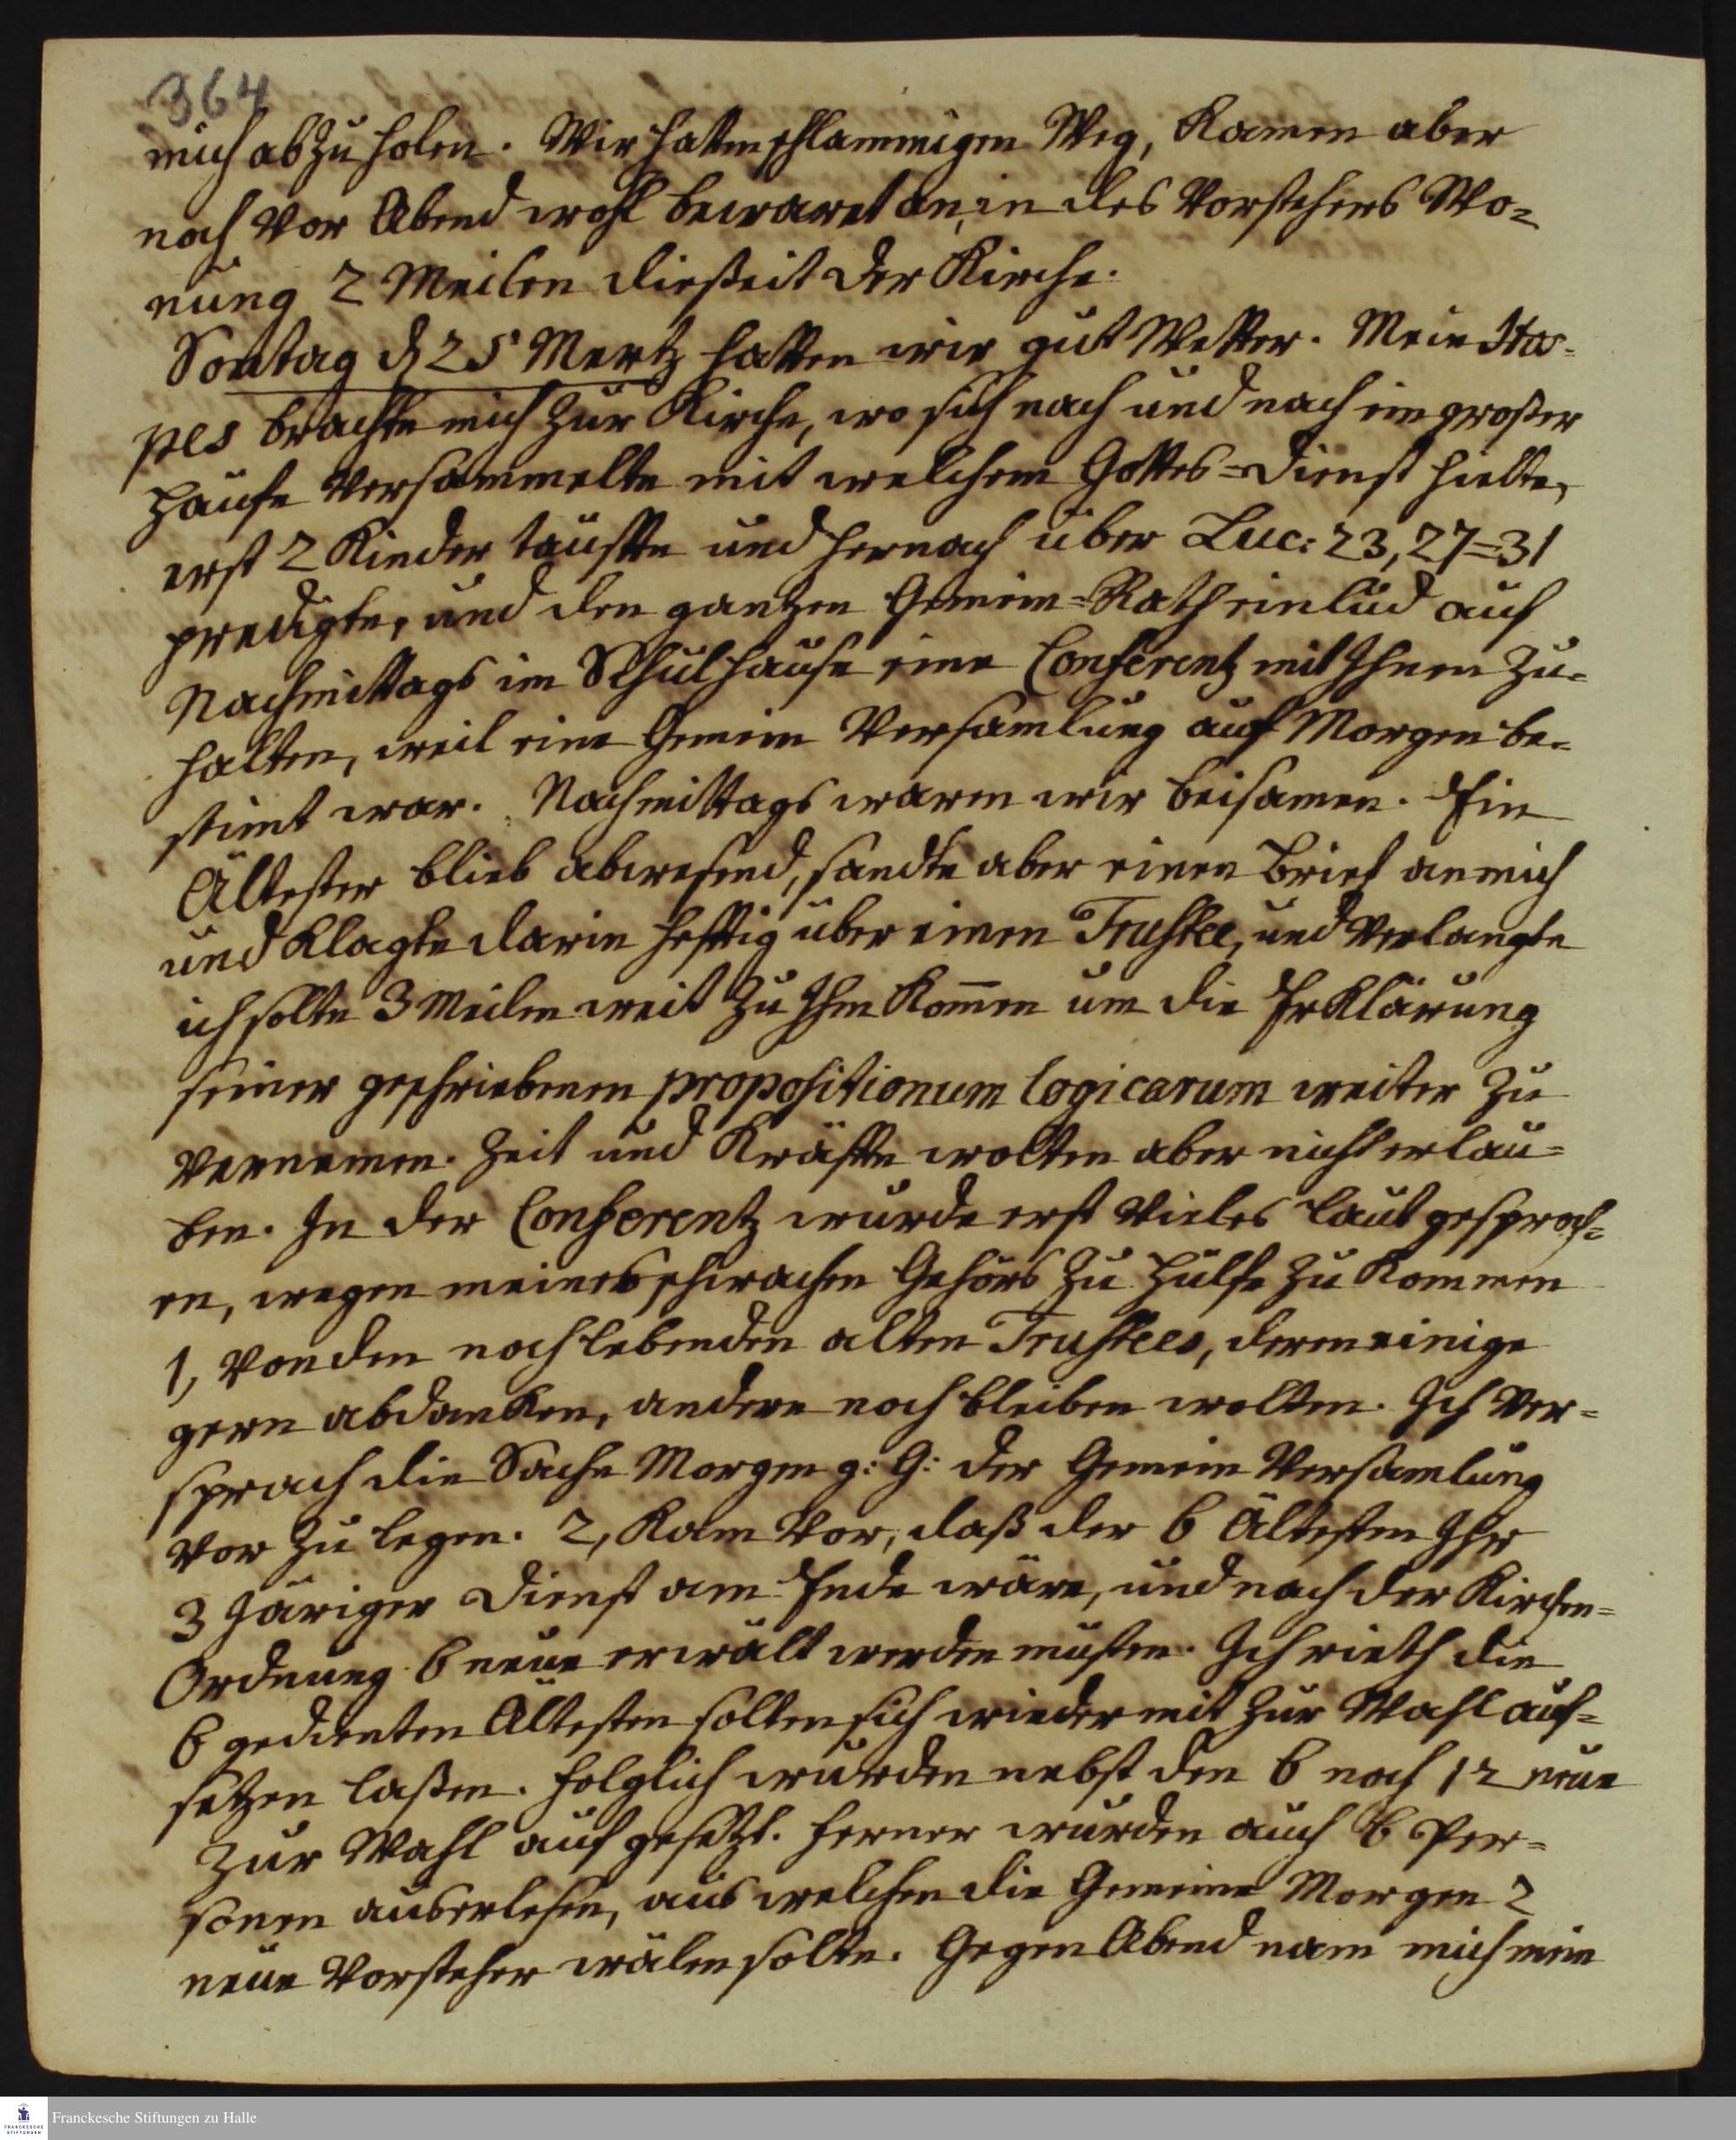 364
mich abzuholen. Wir hatten schlammigen Weg, Kamen aber
noch vor Abend wohl bewaret an, in des Vorstehers Wo=
nung 2 Meilen dießeit der Kirche.
Sontag d 25 Mertz hatten wir gut Wetter. Mein Hos=
pes brachte mich zur Kirche, wo sich nach und nach ein großer
Haufe versammelte mit welchem Gottes=dienst hielte,
erst 2 Kinder tauffte und hernach über Luc: 23, 27=31
predigte, und den gantzen Gemein=Rath einlud auf
Nachmittags im Schulhause eine Conferentz mit Ihnen zu=
halten, weil eine Gemein Versamlung auf Morgen be=
stimt war. Nachmittags waren wir beisamen. Ein
Ältester blieb abwesend, sandte aber einen Brief an mich
und Klagte darin hefftig über einen Trustee, und verlangte
ich solte 3 Meilen weit zu Ihm Kom̅en um die ErKlärung
seiner geschriebenen propositionum logicarum weiter zu
vernemen. Zeit und Kräffte wolten aber nicht erlau=
ben. In der Conferentz wurde erst vieles laut gesproch=
en, wegen meines schwachen Gehörs zu Hülfe zu Kommen
1, von den noch lebenden alten Trustees, deren einige
gern abdanKen, andere noch bleiben wolten. Ich ver=
sprach die Sache Morgen g: G: der Gemein Versamlung
vor zu legen. 2, Kam vor, daß der 6 Ältesten Ihr
3 Järiger Dienst am Ende wäre, und nach der Kirchen=
Ordnung 6 neue erwält werden müsten. Ich rieth die
6 gedienten Ältesten solten sich wieder mit zur Wahl auf=
setzen laßen. Folglich wurden nebst den 6 noch 12 neue
zur Wahl aufgesetzt. Ferner wurden auch 6 Per=
sonen auserlesen, aus welchen die Gemeine Morgen 2
neue Vorsteher wälen solte. Gegen Abend nam mich mein
Franckesche Stiftungen zu Halle
FRANCKESCHE
STIFTUNGEN